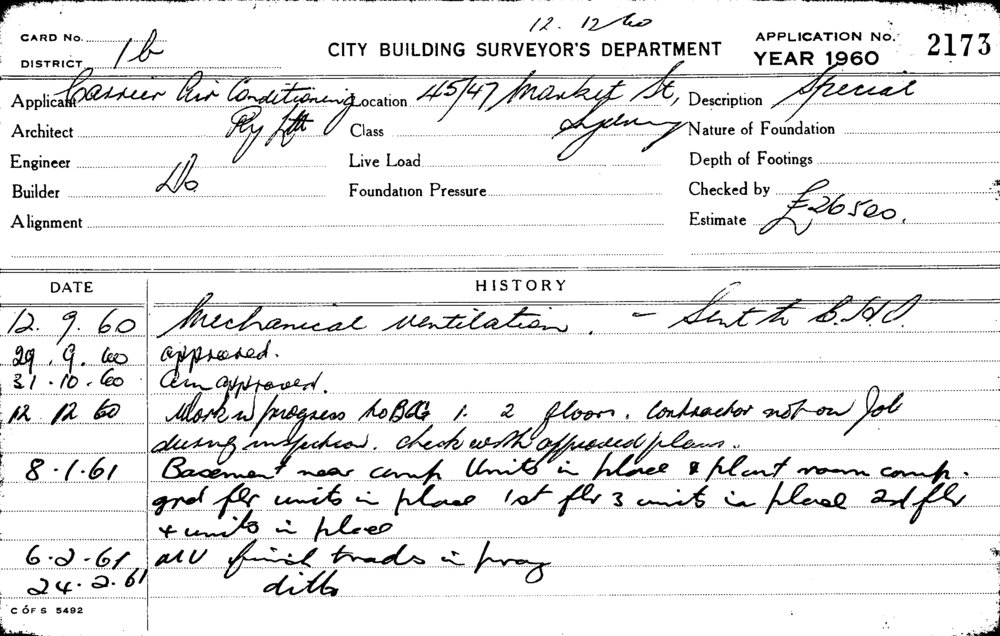 12. 12 60
CARD No.
DISTRICT 1b
CITY BUILDING SURVEYOR'S DEPARTMENT
APPLICATION No. 2173
YEAR 1960
Applicant Carrier Air Conditioning Location 45/47 Market St, Description Special
Architect Pty Ltd Class Sydney Nature of Foundation
Engineer Live Load Depth of Footings
Builder Do Foundation Pressure Checked by
Alignment Estimate £26500.
DATE HISTORY
12. 9. 60 Mechanical ventilation. - Sent to
29. 9. 60 approved.
31. 10. 60 approved.
12. 12 60 Work in progress 1. 2 floors. Contractor not on Job
during inspection. check with approved plans.
8.1.61 Basement near comp Units in place & plant room comp.
grd flr units in place 1st flr 3 units in place 2nd flr
4 units in place
6.2.61 finish trades in prog
24.2.61 ditto
C OF S 5492